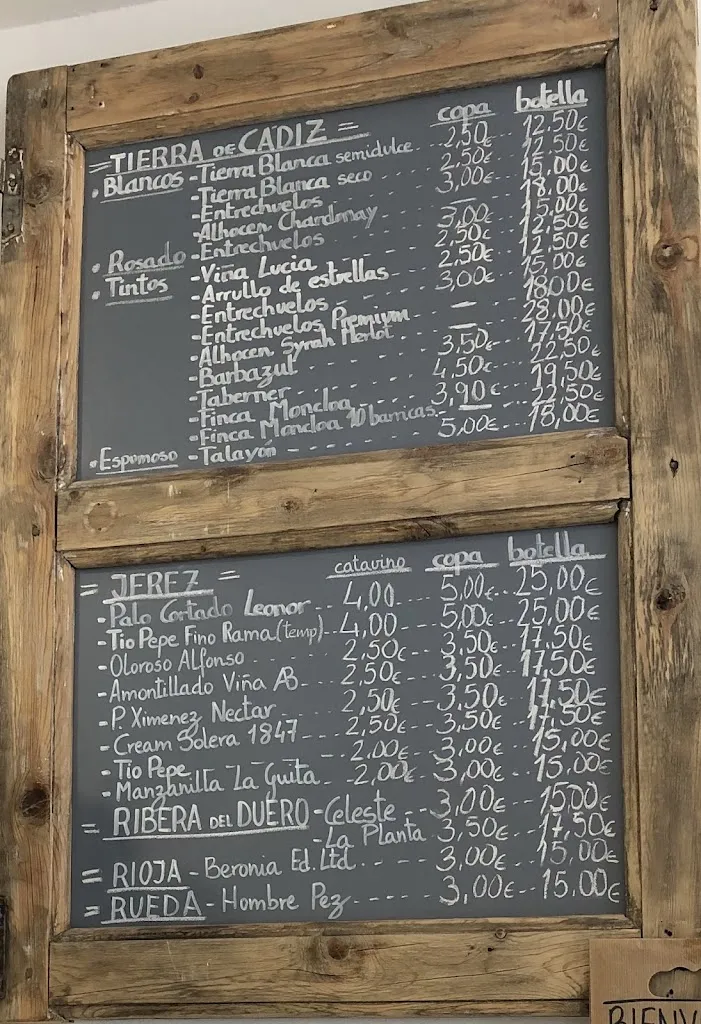 = TIERRA DE CÁDIZ = copa botella
• Blancos - Tierra Blanca semidulce 2,50 12,50€
- Tierra Blanca seco 2,50€ 12,50€
- Entrechuelos 3,00€ 15,00€
- Alhocen Chardonnay — 18,00€
• Rosado - Entrechuelos 3,00€ 15,00€
• Tintos - Viña Lucia 2,50€ 12,50€
- Arrullo de estrellas 2,50€ 12,50€
- Entrechuelos 3,00€ 15,00€
- Entrechuelos Premium — 18,00€
- Alhocen Syrah Merlot — 28,00€
- Barbazul 3,50€ 17,50€
- Taberner 4,50€ 22,50€
- Finca Moncloa 3,90€ 19,50€
- Finca Moncloa 10 barricas — 22,50€
• Espumoso - Talayón 5,00€ 18,00€
= JEREZ = catavino copa botella
- Palo Cortado Leonor 4,00 5,00€ 25,00€
- Tio Pepe Fino Rama (temp) 4,00 5,00€ 25,00€
- Oloroso Alfonso 2,50€ 3,50€ 17,50€
- Amontillado Viña AB 2,50€ 3,50€ 17,50€
- P. Ximenez Nectar 2,50€ 3,50€ 17,50€
- Cream Solera 1847 2,50€ 3,50€ 17,50€
- Tio Pepe 2,00€ 3,00€ 15,00€
- Manzanilla La Guita 2,00€ 3,00€ 15,00€
= RIBERA DEL DUERO - Celeste 3,00€ 15,00€
- La Planta 3,50€ 17,50€
= RIOJA - Beronia Ed. Ltd 3,00€ 15,00€
= RUEDA - Hombre Pez 3,00€ 15,00€